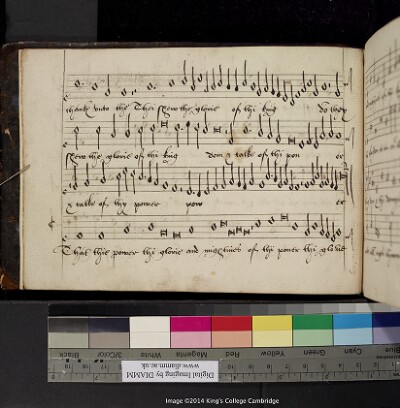 thanks unto the Thei shew the glorie of thi king do they
shew the glorie of thi king dom & talke of thi pou er
& talke of thy power pow er
That thie power thi glorie and mightines of thi power thi glorie
Blue Cyan Green Yellow Red Magenta White 3/Color Black
Digital Imaging by DIAMM
www.diamm.ac.uk
Image ©2014 King's College Cambridge